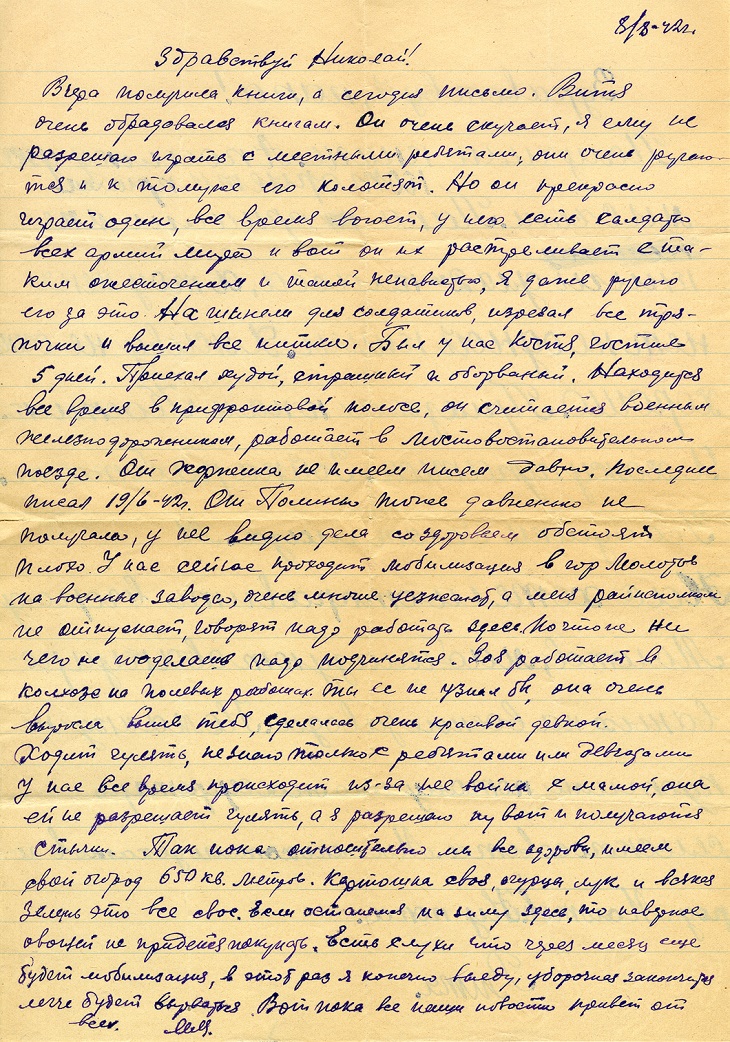 8/8-42г.
Здравствуй Николай!
Вчера получила книги, а сегодня письмо. Витя
очень обрадовался книгам. Он очень скучает, я ему не
разрешаю играть с местными ребятами, они очень ругаю-
тся и к тому же его колотят. Но он прекрасно
играет один, все время воюет, у него есть салдаты
всех армий мира и вот он их растреливает с та-
ким ожесточением и такой ненавистью, я даже ругаю
его за это. На шинели для солдатиков, изрезал все тря-
почки и все нитки. Был у нас Костя, гостил
5 дней. Приехал худой, страшный и оборваный. Находится
все время в прифронтовой полосе, он считается военным
железнодорожником, работает в мостовостановительном
поезде. От не имеем писем давно. Последнее
писал 19/6-42г. От Полины тоже давненько не
получала, у нее видно дела со здоровьем обстоят
плохо. У нас сейчас проходит мобилизация в гор Молотов
на военные заводы, очень многие уезжают, а меня райисполком
не отпускает, говорят надо работать здесь. Но что же ни
чего не поделаешь надо подчинятся. Зоя работает в
колхозе на полевых работах. Ты ее не узнал бы, она очень
выросла выше тебя, сделалась очень красивой девкой.
Ходит гулять, не знаю только с ребятами или девчатами
У нас все время происходит из-за нее война с мамой, она
ей не разрешает гулять, а я разрешаю ну вот и получаются
стычки. Так пока относительно мы все здоровы, имеем
свой огород 650 кв. метров. Картошка своя, огурцы, лук и всякая
зелень это все свое. Если останемся на зиму здесь, то наверное
овощей не придется покупать. Есть слухи что через месяц еще
будет мобилизация, в этот раз я конечно выеду, уборочная закончится
легче будет вырваться. Вот пока все наши новости привет от
всех.